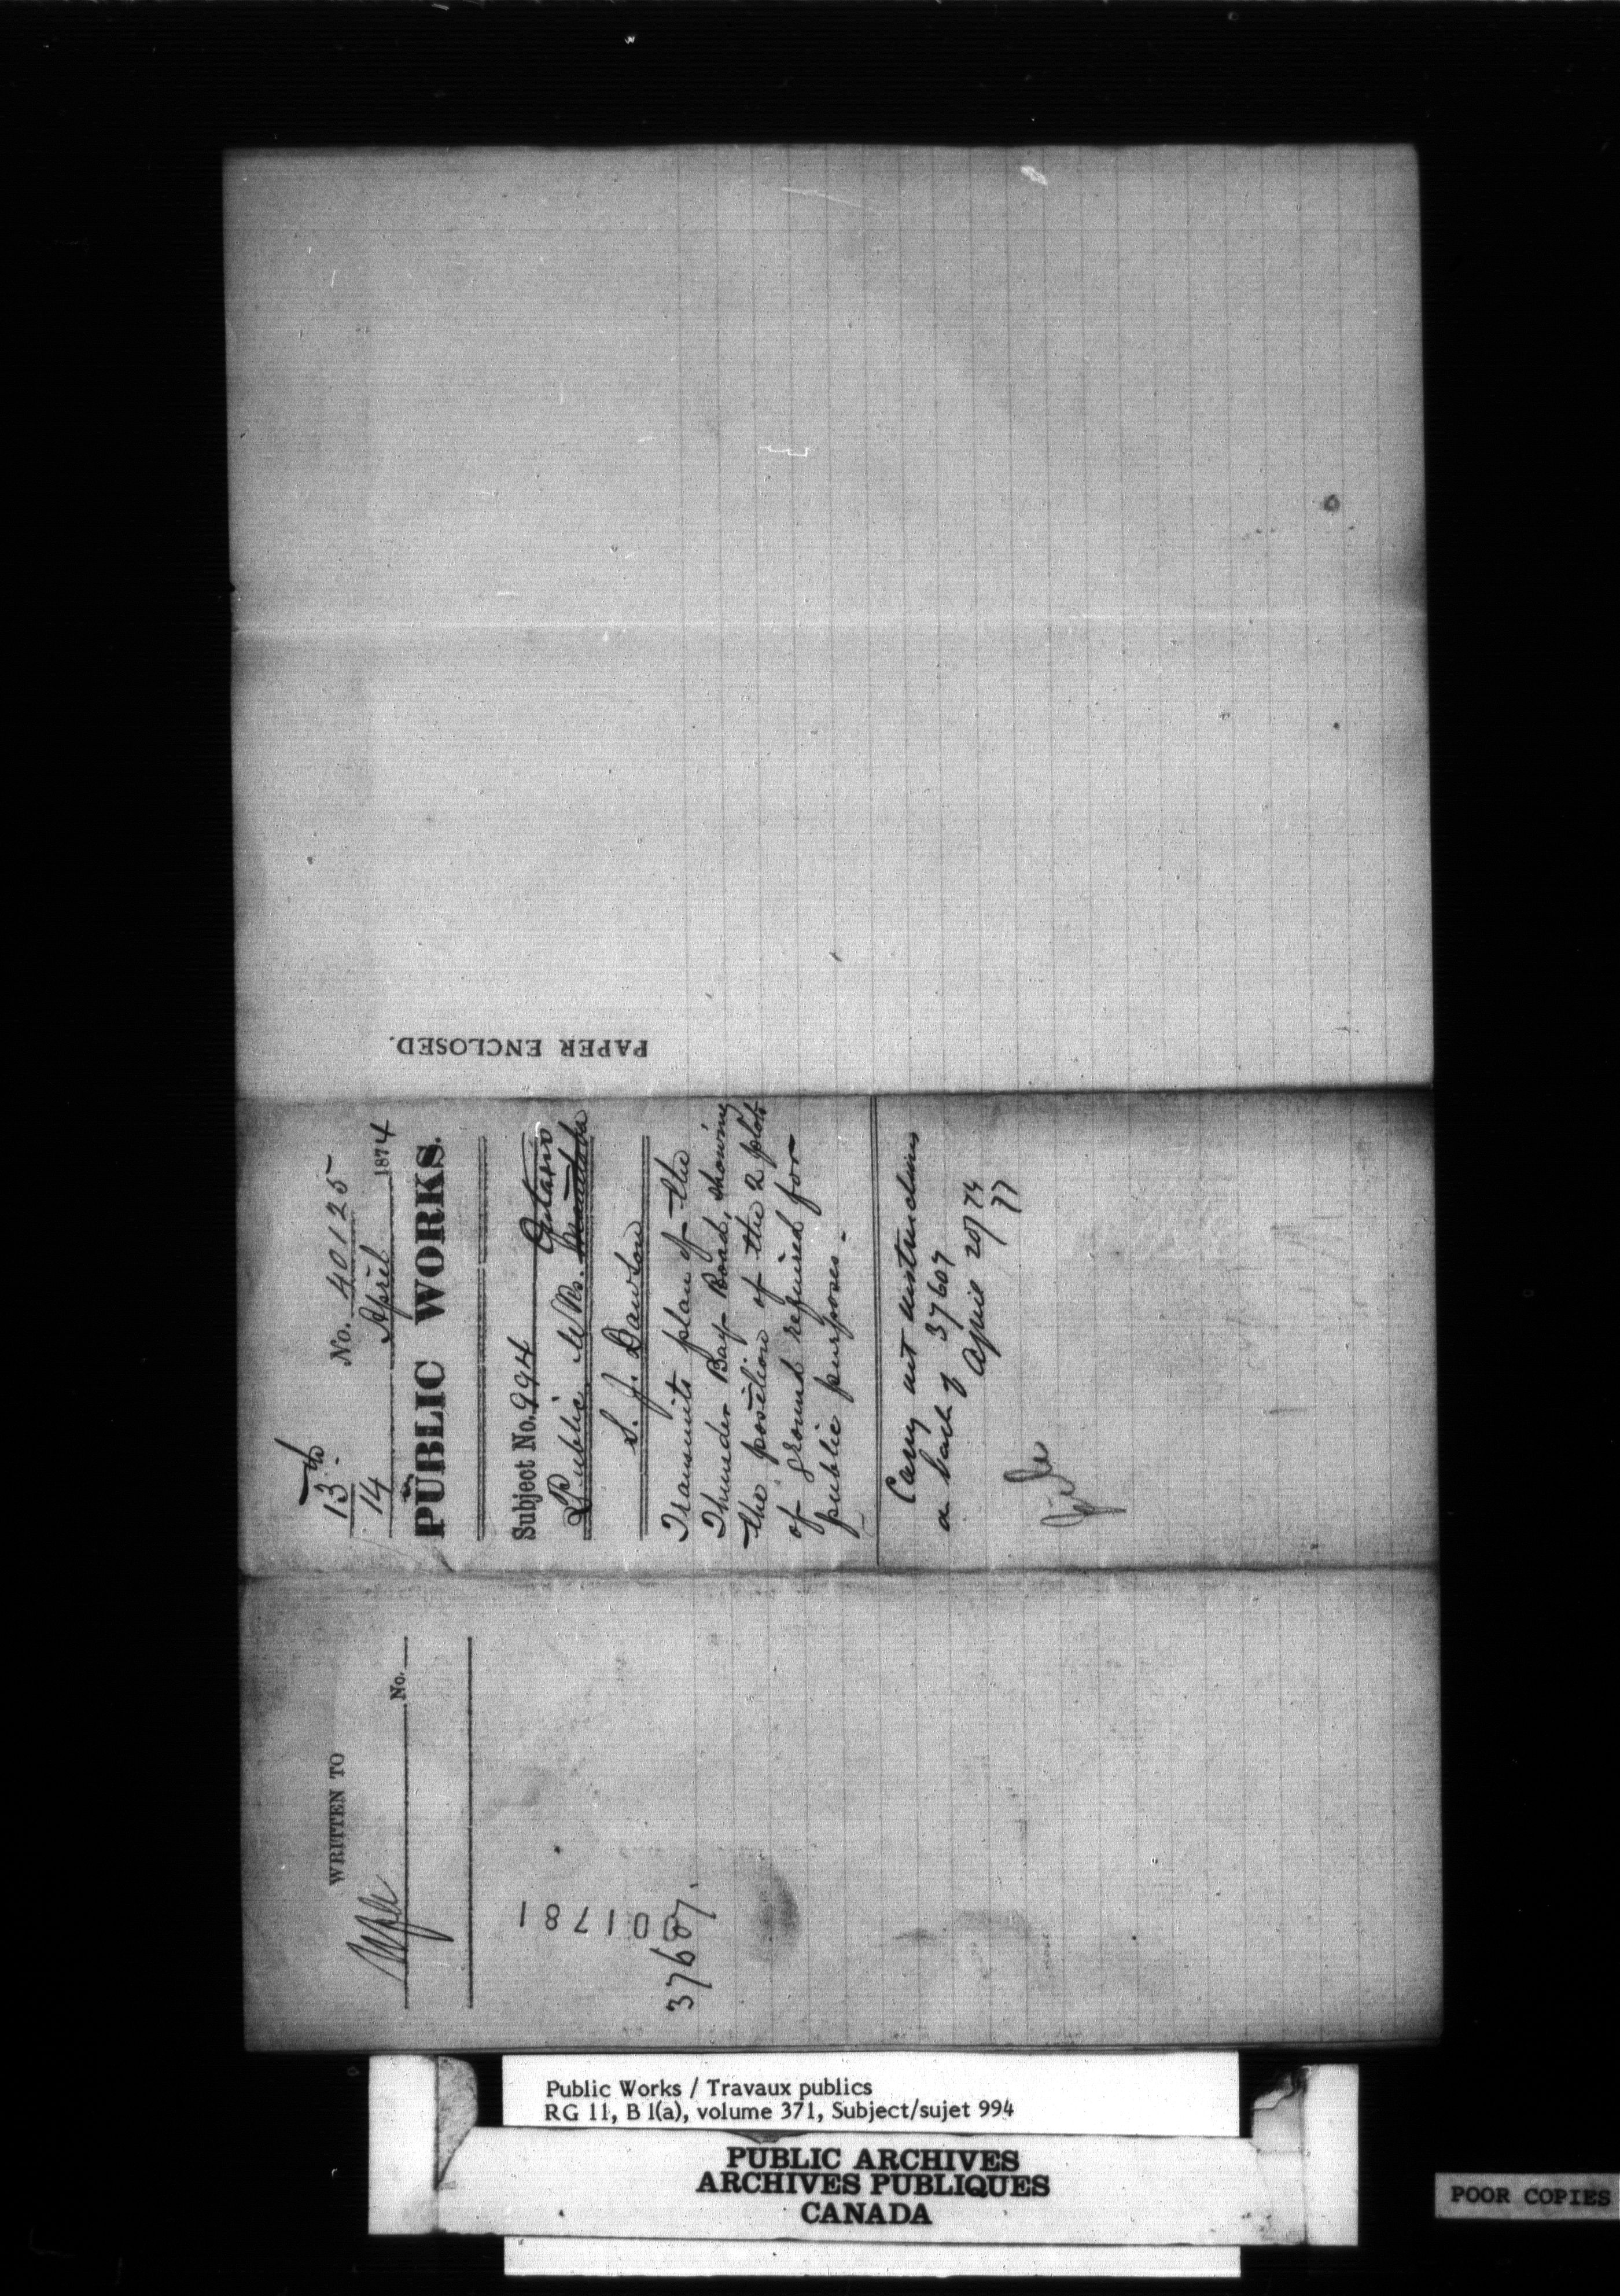 13th
14 No. 40125
April 1874
PUBLIC WORKS.
Subject No. 994 Ontario
Public Wks. Manitoba
S. J. Dawson
Transmits plan of the
Thunder Bay Road, showing
the position of the 2 plots
of ground required for
public purposes.
Carry out instructions
a back of 37607
April 20/74
PAPER ENCLOSED.
WRITTEN TO
No.
001781
37607.
Public Works / Travaux publics
RG 11, B 1(a), volume 371, Subject/sujet 994
PUBLIC ARCHIVES
ARCHIVES PUBLIQUES
CANADA
POOR COPIES